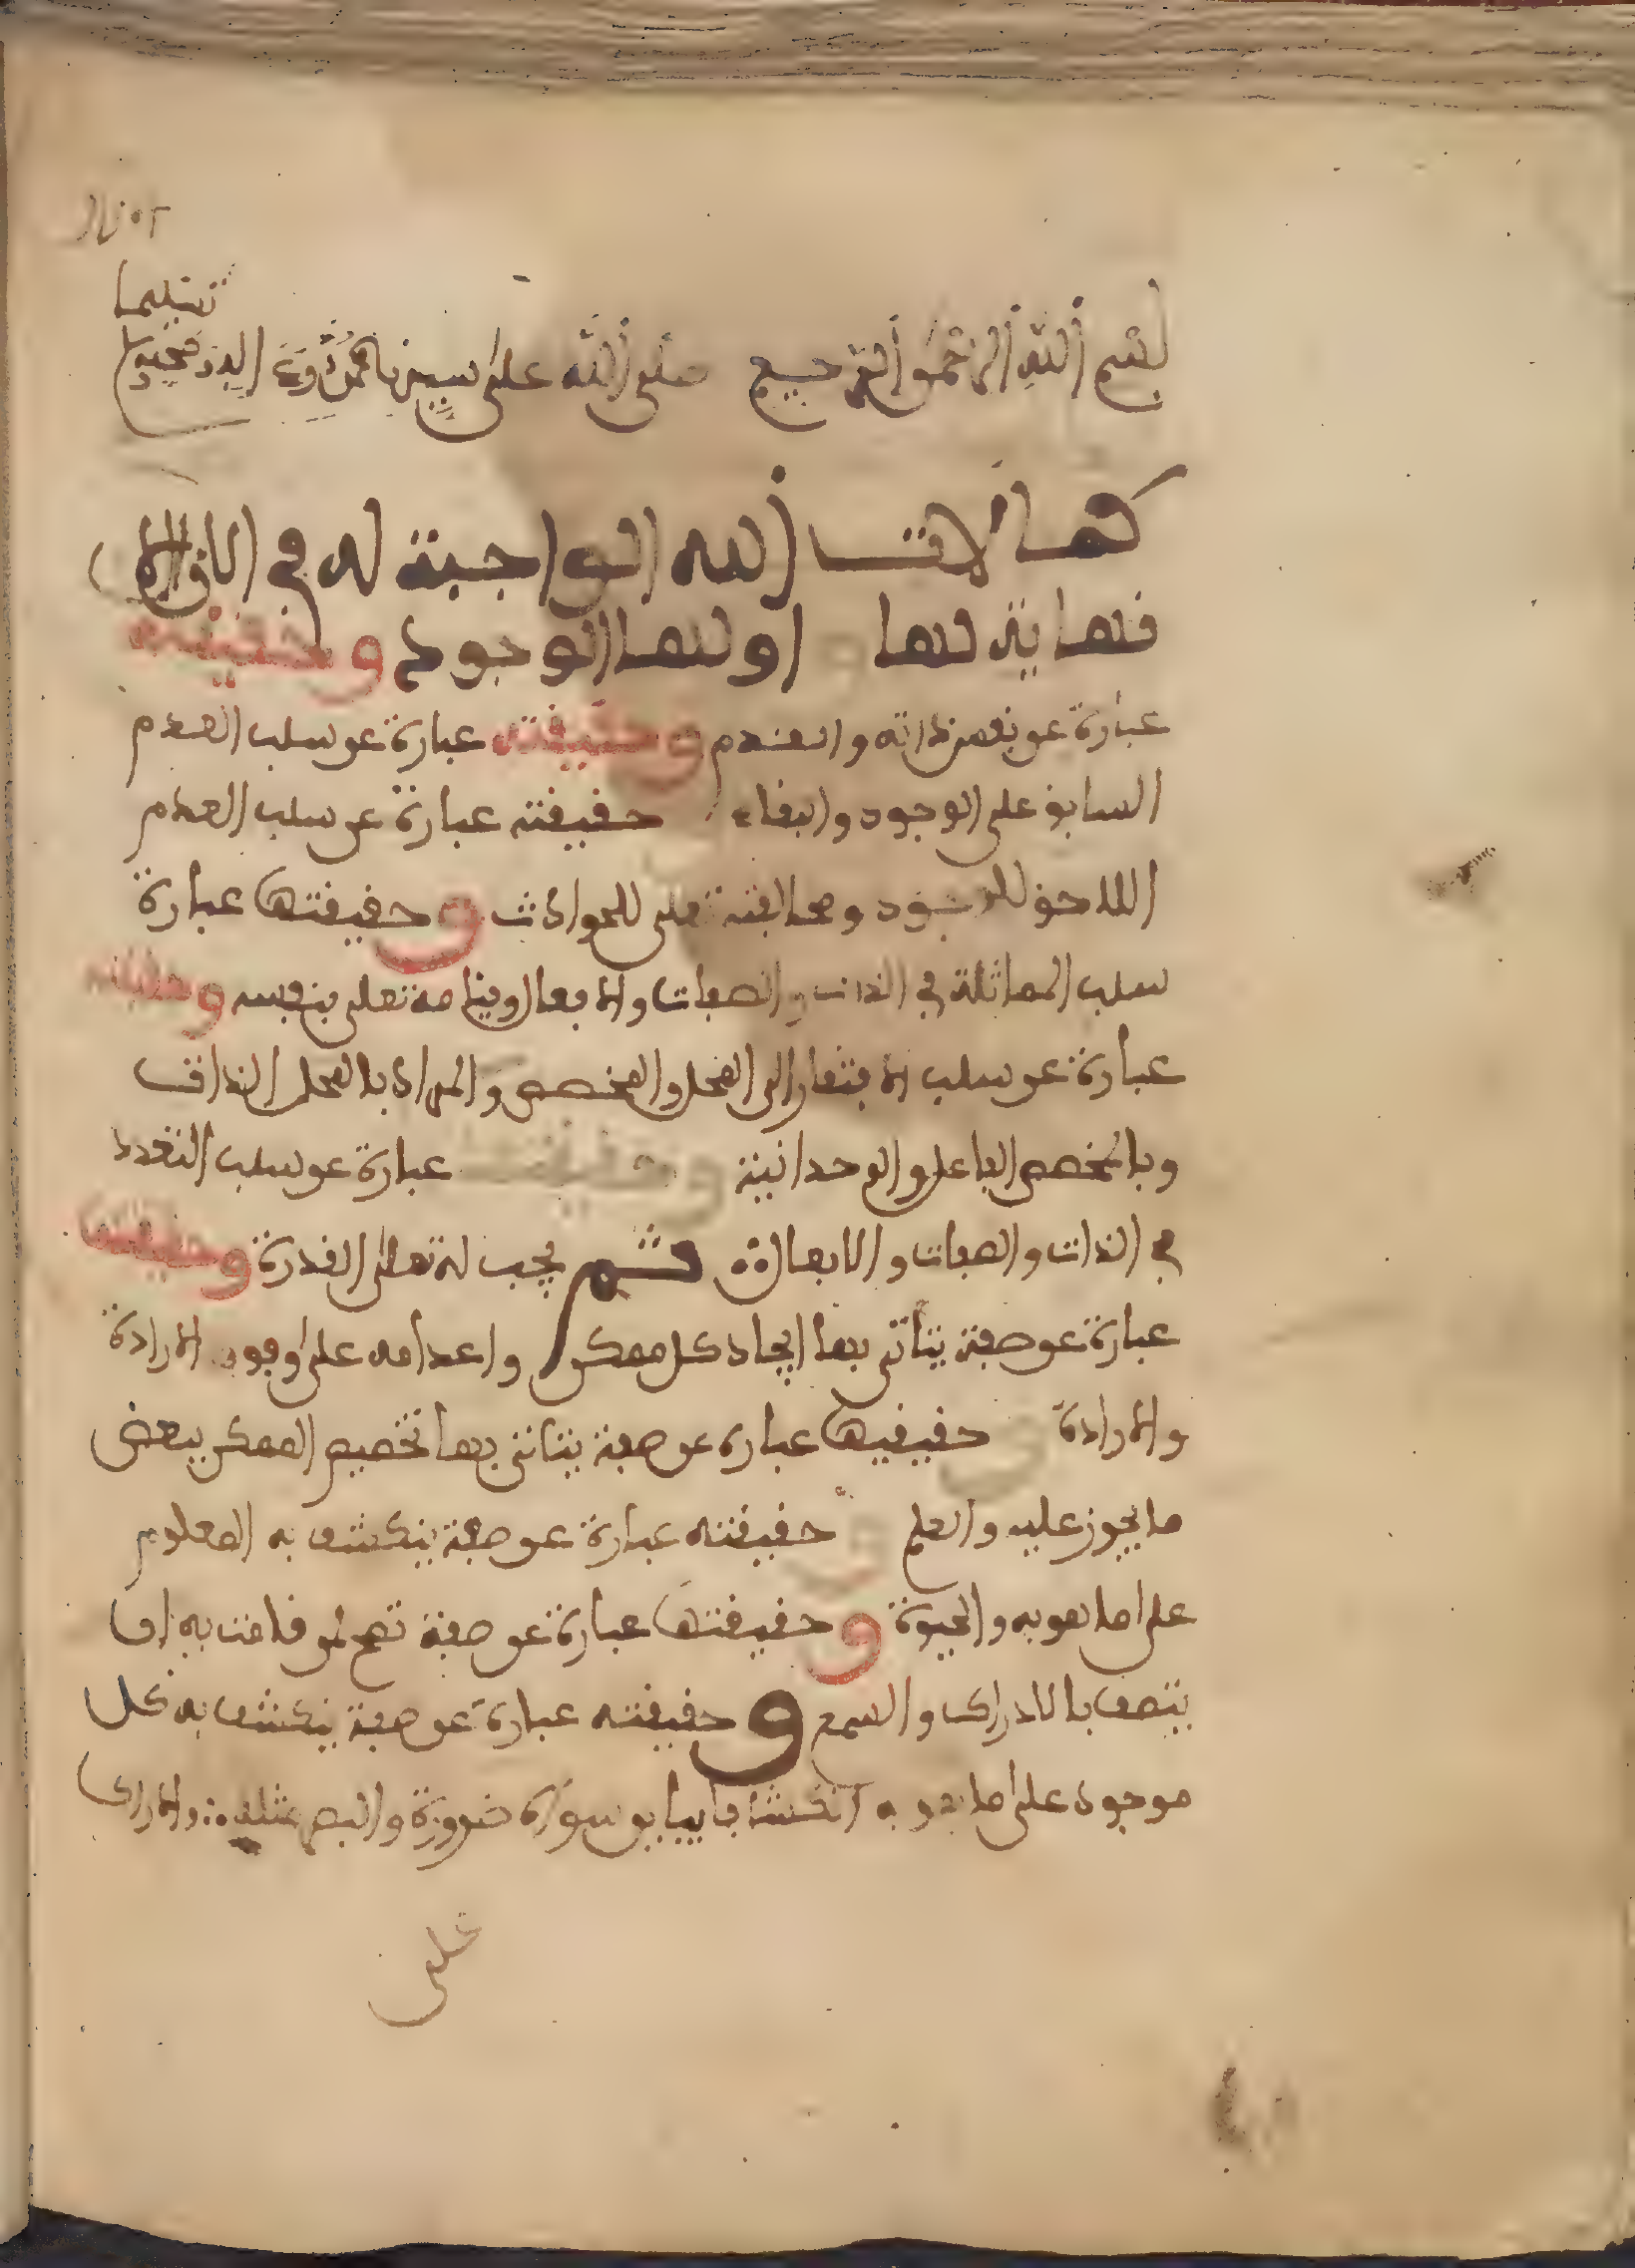 تسليما
بسم الله الرحمن الرحيم صلى الله على سيدنا محمد وعلى اله وصحبه وسلم
كمالات الله الواجبة له في
لها اولها الوجود وحقيقته
عبارة عن نفس ذاته والقدم وحقيقته عبارة عن سلب العدم
السابق على الوجود والبقاء حقيقته عبارة عن سلب العدم
اللاحق للوجود ومخالفته تعلى للحوادث وحقيقتها عبارة
سلب المماثلة في الذات والصفات والافعال وقيامه تعلى بنفسه وحقيقته
عبارة عن سلب الافتقار الى المحل والمخصص والمراد بالمحل الذات
وبالمخصص الفاعل والوحدانية وحقيقتها عبارة عن سلب التعدد
في الذات والصفات والافعال ثم يجب له تعلى القدرة وحقيقتها
عبارة عن صفة يتأتى بها ايجاد كل ممكن واعدامه على وفق الارادة
والارادة وحقيقيها عبارة عن صفة يتاتى بها تخصيص الممكن ببعض
ما يجوز عليه والعلم وحقيقته عبارة عن صفة ينكشف به المعلوم
على ما هو به والحيوة وحقيقتها عبارة عن صفة تصح لمن قامت به ان
يتصف بالادراك والسمع وحقيقته عبارة عن صفة ينكشف به كل
موجود على ما هو به انكشافا يباين سواه ضرورة والبصر مثله والادراك
على